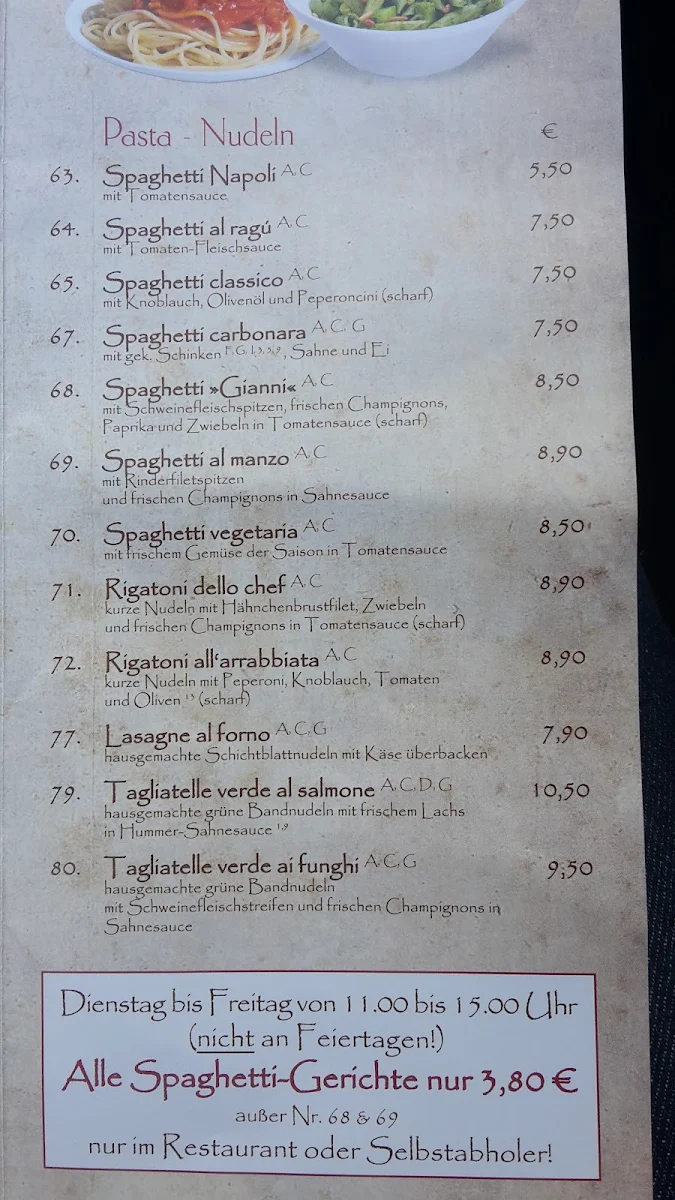 Pasta - Nudeln €
63. Spaghetti Napoli A, C 5,50
mit Tomatensauce
64. Spaghetti al ragú A, C 7,50
mit Tomaten-Fleischsauce
65. Spaghetti classico A, C 7,50
mit Knoblauch, Olivenöl und Peperoncini (scharf)
67. Spaghetti carbonara A, C, G 7,50
mit gek. Schinken F, G, 1, 3, 5, 9, Sahne und Ei
68. Spaghetti »Gianni« A, C 8,50
mit Schweinefleischspitzen, frischen Champignons,
Paprika und Zwiebeln in Tomatensauce (scharf)
69. Spaghetti al manzo A, C 8,90
mit Rinderfiletspitzen
und frischen Champignons in Sahnesauce
70. Spaghetti vegetaria A, C 8,50
mit frischem Gemüse der Saison in Tomatensauce
71. Rigatoni dello chef A, C 8,90
kurze Nudeln mit Hähnchenbrustfilet, Zwiebeln
und frischen Champignons in Tomatensauce (scharf)
72. Rigatoni all'arrabbiata A, C 8,90
kurze Nudeln mit Peperoni, Knoblauch, Tomaten
und Oliven (scharf)
77. Lasagne al forno A, C, G 7,90
hausgemachte Schichtblattnudeln mit Käse überbacken
79. Tagliatelle verde al salmone A, C, D, G 10,50
hausgemachte grüne Bandnudeln mit frischem Lachs
in Hummer-Sahnesauce 1,9
80. Tagliatelle verde ai funghi A, C, G 9,50
hausgemachte grüne Bandnudeln
mit Schweinefleischstreifen und frischen Champignons in
Sahnesauce
Dienstag bis Freitag von 11.00 bis 15.00 Uhr
(nicht an Feiertagen!)
Alle Spaghetti-Gerichte nur 3,80 €
außer Nr. 68 & 69
nur im Restaurant oder Selbstabholer!